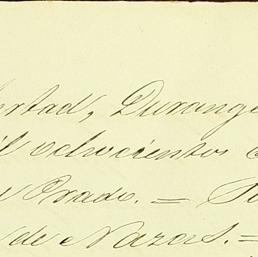 ertad, Durang
il ochocientos
e Prado. =
de Nazas. =